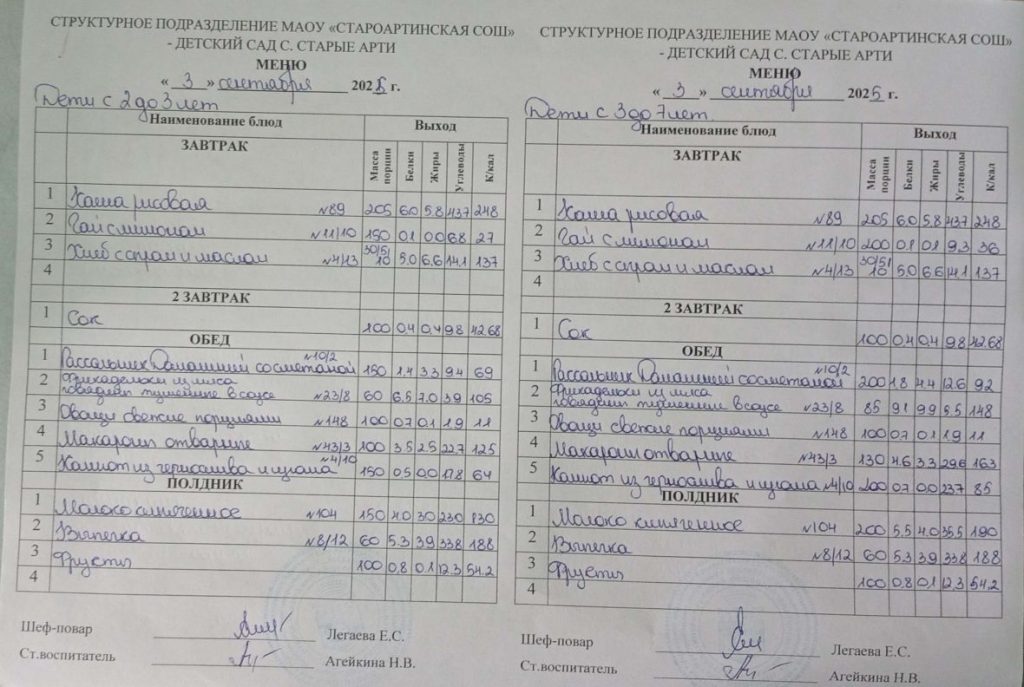 СТРУКТУРНОЕ ПОДРАЗДЕЛЕНИЕ МАОУ «СТАРОАРТИНСКАЯ СОШ»
- ДЕТСКИЙ САД С. СТАРЫЕ АРТИ
МЕНЮ
« 3 » сентября 2025 г.
Дети с 2 до 3 лет
Наименование блюд Выход
ЗАВТРАК Масса порции Белки Жиры Углеводы К/кал
1 Каша рисовая №89 205 6.0 5.8 43.7 248
2 Чай с лимоном №11/10 150 0.1 0.0 6.8 27
3 Хлеб с сыром и маслом №4/13 30/5/10 5.0 6.6 14.1 137
4
2 ЗАВТРАК
1 Сок 100 0.4 0.4 9.8 42.68
ОБЕД
1 Рассольник Домашний со сметаной №10/2 150 1.4 3.3 9.4 69
2 Фрикадельки из мяса говядины тушенные в соусе №23/8 60 6.5 7.0 3.9 105
3 Овощи свежие порциями №148 100 0.7 0.1 1.9 11
4 Макароны отварные №43/3 100 3.5 2.5 22.7 125
5 Компот из чернослива и изюма №4/10 150 0.5 0.0 17.8 64
ПОЛДНИК
1 Молоко кипяченное №104 150 4.0 3.0 23.0 130
2 Выпечка №8/12 60 5.3 3.9 33.8 188
3 Фрукты 100 0.8 0.1 12.3 54.2
4
Шеф-повар Легаева Е.С.
Ст.воспитатель Агейкина Н.В.
СТРУКТУРНОЕ ПОДРАЗДЕЛЕНИЕ МАОУ «СТАРОАРТИНСКАЯ СОШ»
- ДЕТСКИЙ САД С. СТАРЫЕ АРТИ
МЕНЮ
« 3 » сентября 2025 г.
Дети с 3 до 7 лет.
Наименование блюд Выход
ЗАВТРАК Масса порции Белки Жиры Углеводы К/кал
1 Каша рисовая №89 205 6.0 5.8 43.7 248
2 Чай с лимоном №11/10 200 0.1 0.1 9.3 36
3 Хлеб с сыром и маслом №4/13 30/5/10 5.0 6.6 14.1 137
4
2 ЗАВТРАК
1 Сок 100 0.4 0.4 9.8 42.68
ОБЕД
1 Рассольник Домашний со сметаной №10/2 200 1.8 4.4 12.6 92
2 Фрикадельки из мяса говядины тушенные в соусе №23/8 85 9.1 9.9 5.5 148
3 Овощи свежие порциями №148 100 0.7 0.1 1.9 11
4 Макароны отварные №43/3 130 4.6 3.3 29.6 163
5 Компот из чернослива и изюма №4/10 200 0.7 0.0 23.7 85
ПОЛДНИК
1 Молоко кипяченное №104 200 5.5 4.0 35.5 190
2 Выпечка №8/12 60 5.3 3.9 33.8 188
3 Фрукты 100 0.8 0.1 12.3 54.2
4
Шеф-повар Легаева Е.С.
Ст.воспитатель Агейкина Н.В.